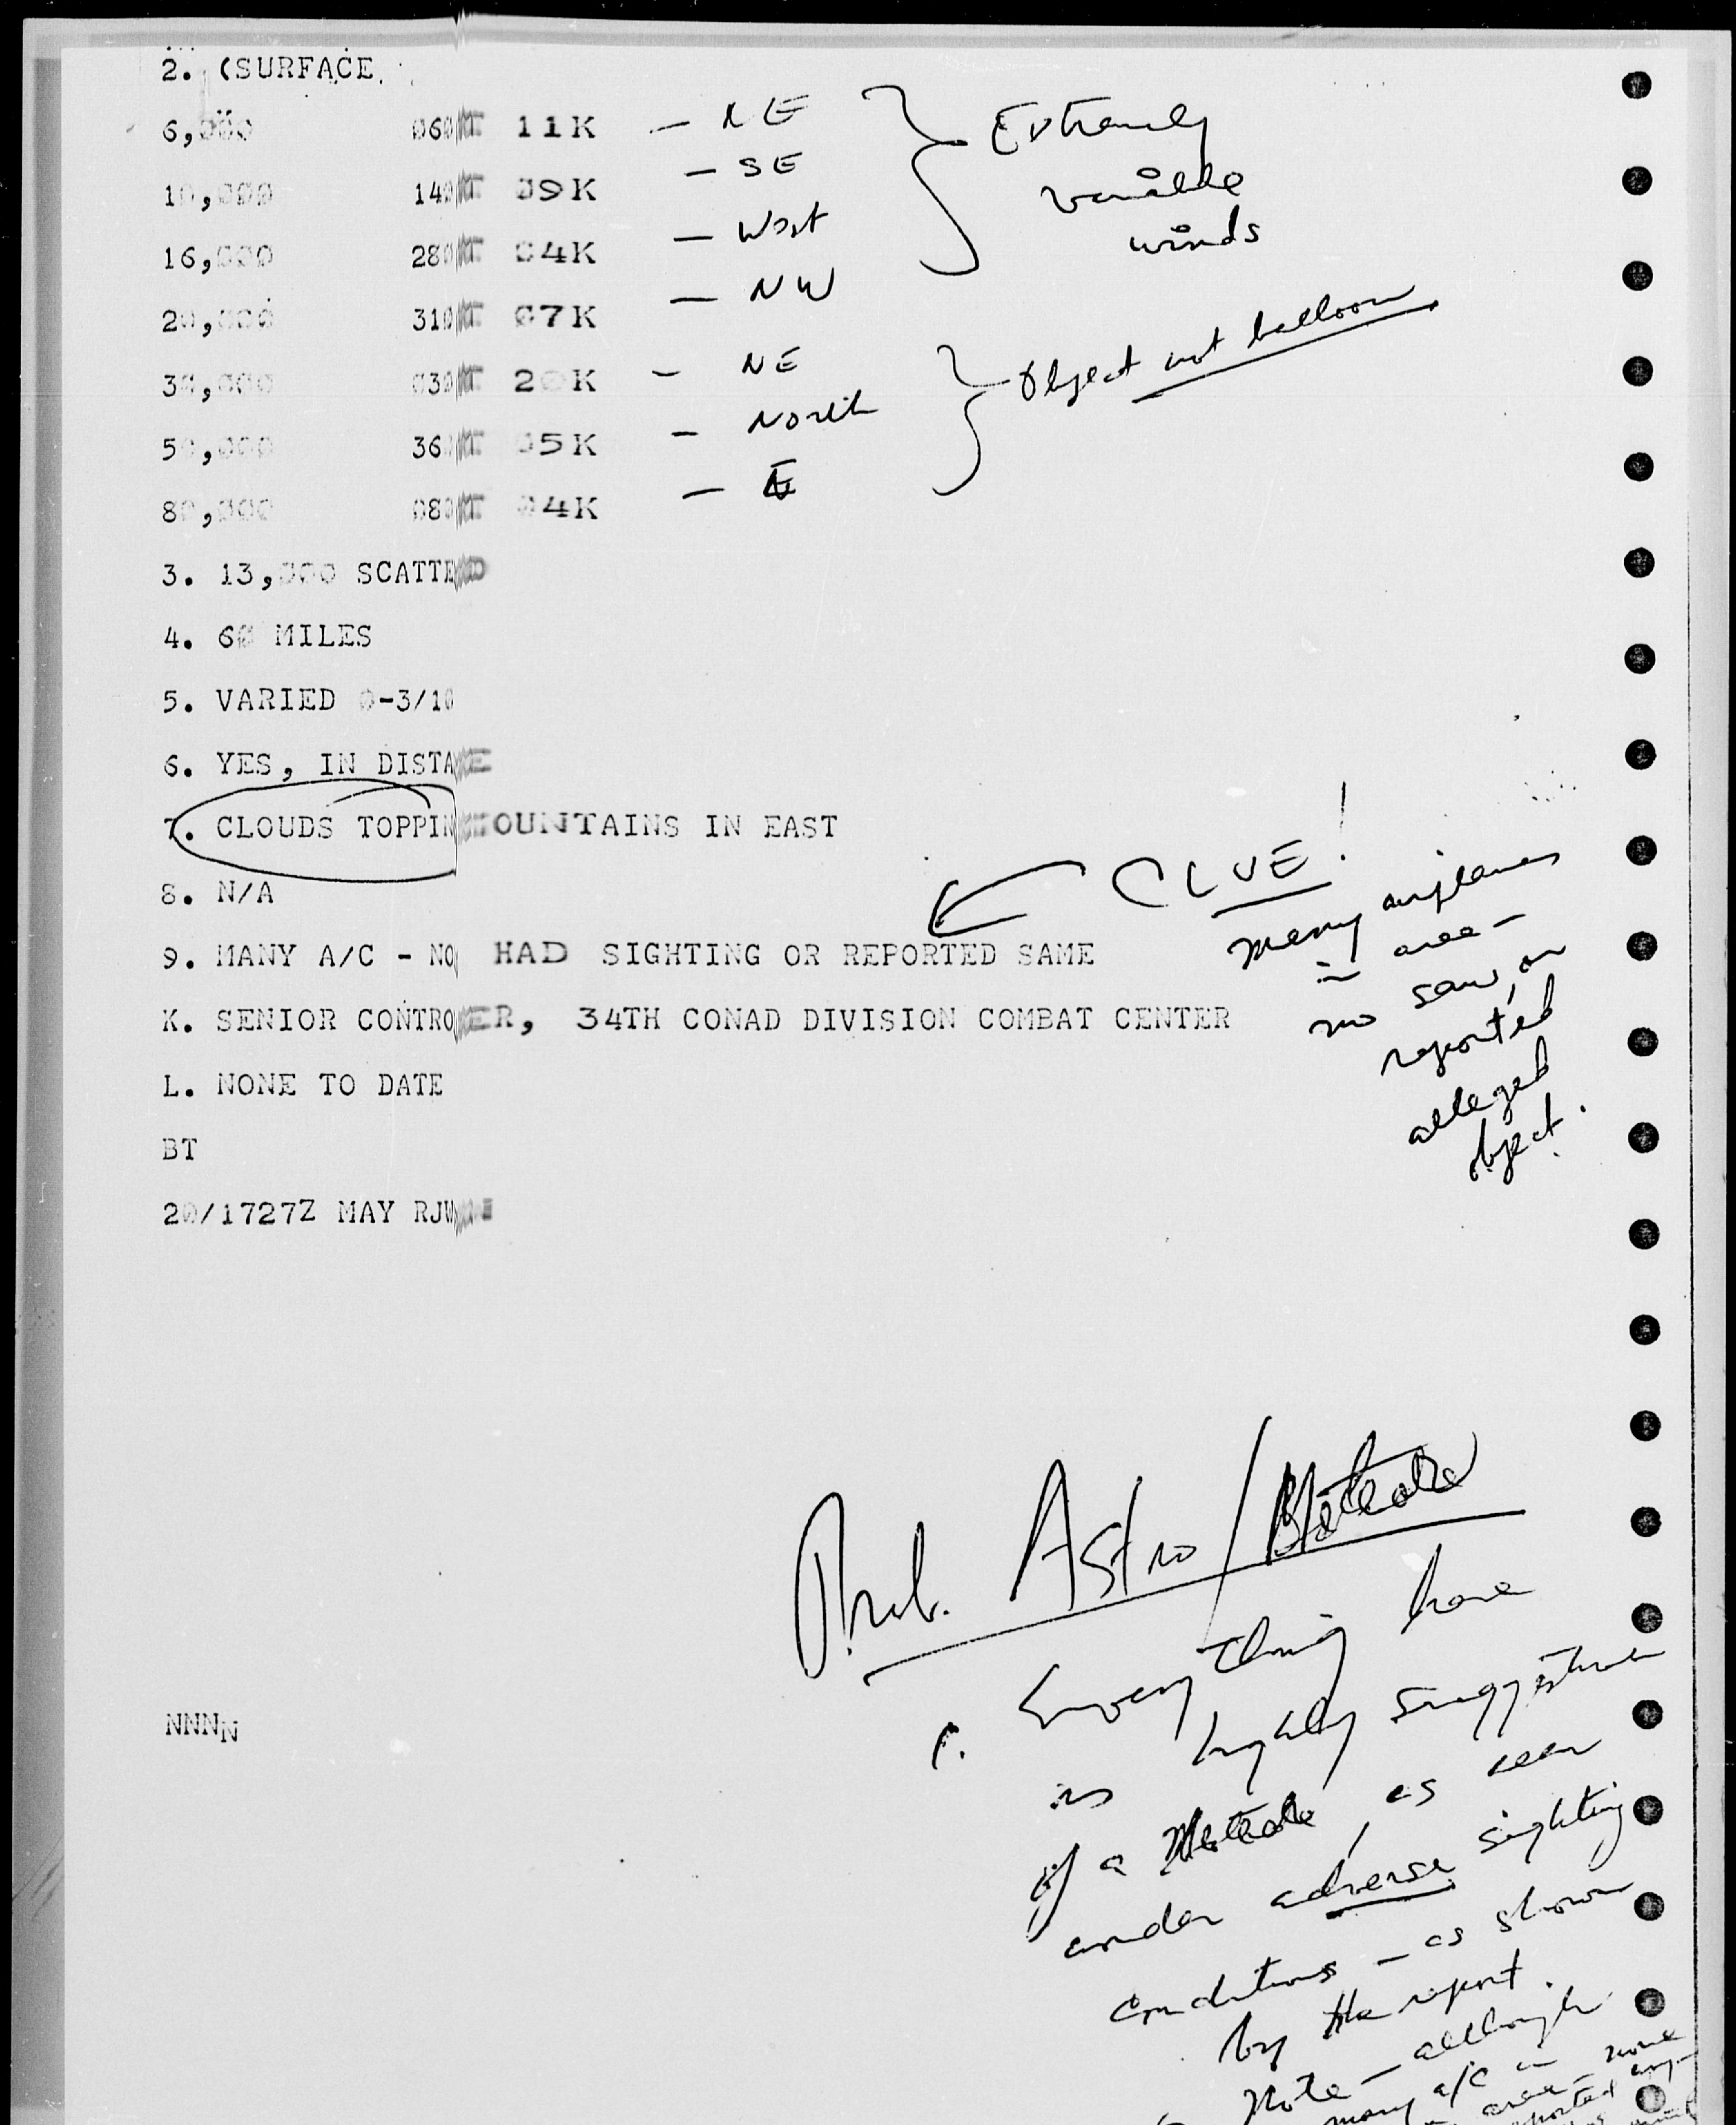 2. (SURFACE
6,000 060 11K — NE
10,000 140 09K — SE
16,000 280 04K — West
20,000 310 07K — NW
Extremely
variable
winds
30,000 030 20K — NE
50,000 360 05K — North
80,000 080 04K — E
Object not balloon
3. 13,000 SCATTE
4. 60 MILES
5. VARIED 0-3/10
6. YES, IN DISTA E
7. CLOUDS TOPPIN OUNTAINS IN EAST
8. N/A
CLUE!
9. MANY A/C - NO HAD SIGHTING OR REPORTED SAME
many airplanes
in area —
no saw, or
reported
alleged
object.
K. SENIOR CONTRO ER, 34TH CONAD DIVISION COMBAT CENTER
L. NONE TO DATE
BT
20/1727Z MAY RJW
Prob. Astro/Meteor
Everything here
is highly suggestive
of a Meteor, as seen
under adverse sighting
conditions — as shown
by the report.
Note — although
many a/c in
area — none
reported
NNNN